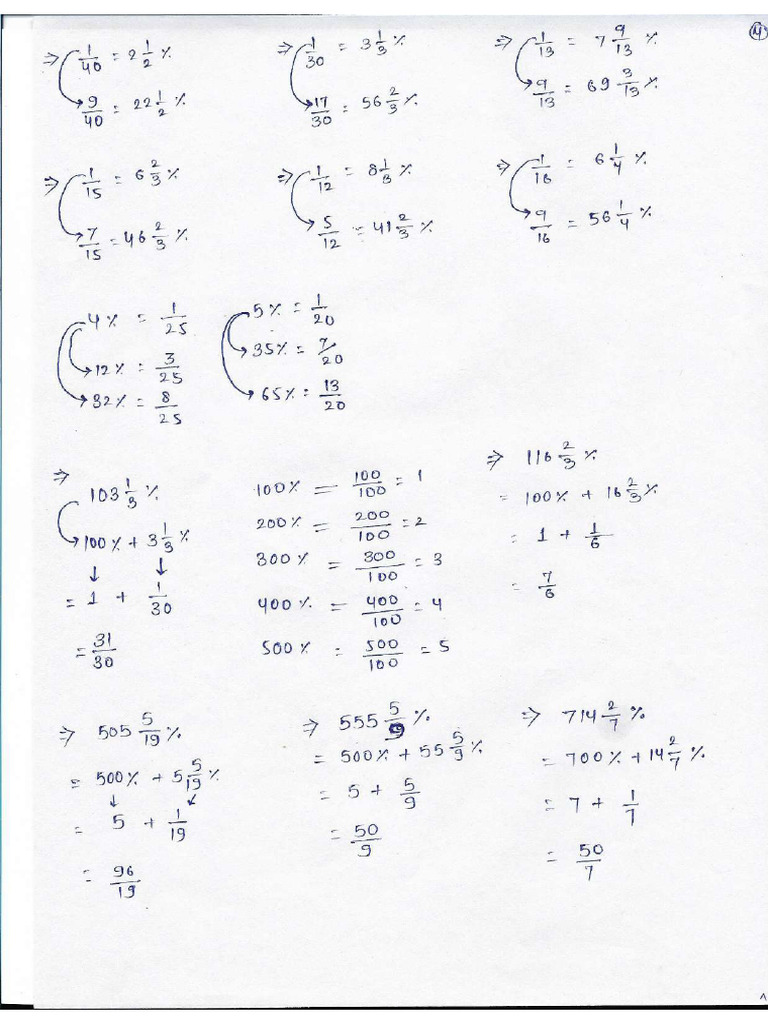 4
⇒ 1/40 = 2 1/2 %
9/40 = 22 1/2 %
⇒ 1/30 = 3 1/3 %
17/30 = 56 2/3 %
⇒ 1/13 = 7 9/13 %
9/13 = 69 3/13 %
⇒ 1/15 = 6 2/3 %
7/15 = 46 2/3 %
⇒ 1/12 = 8 1/3 %
5/12 = 41 2/3 %
⇒ 1/16 = 6 1/4 %
9/16 = 56 1/4 %
4% = 1/25
12% = 3/25
32% = 8/25
5% = 1/20
35% = 7/20
65% = 13/20
⇒ 103 1/3 %
100% + 3 1/3 %
↓ ↓
= 1 + 1/30
= 31/30
100% = 100/100 = 1
200% = 200/100 = 2
300% = 300/100 = 3
400% = 400/100 = 4
500% = 500/100 = 5
⇒ 116 2/3 %
= 100% + 16 2/3 %
= 1 + 1/6
= 7/6
⇒ 505 5/19 %
= 500% + 5 5/19 %
= 5 + 1/19
= 96/19
⇒ 555 5/9 %
= 500% + 55 5/9 %
= 5 + 5/9
= 50/9
⇒ 714 2/7 %
= 700% + 14 2/7 %
= 7 + 1/7
= 50/7